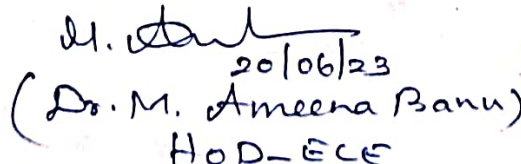 20/06/23
(Dr. M. Ameena Banu)
HOD-ECE